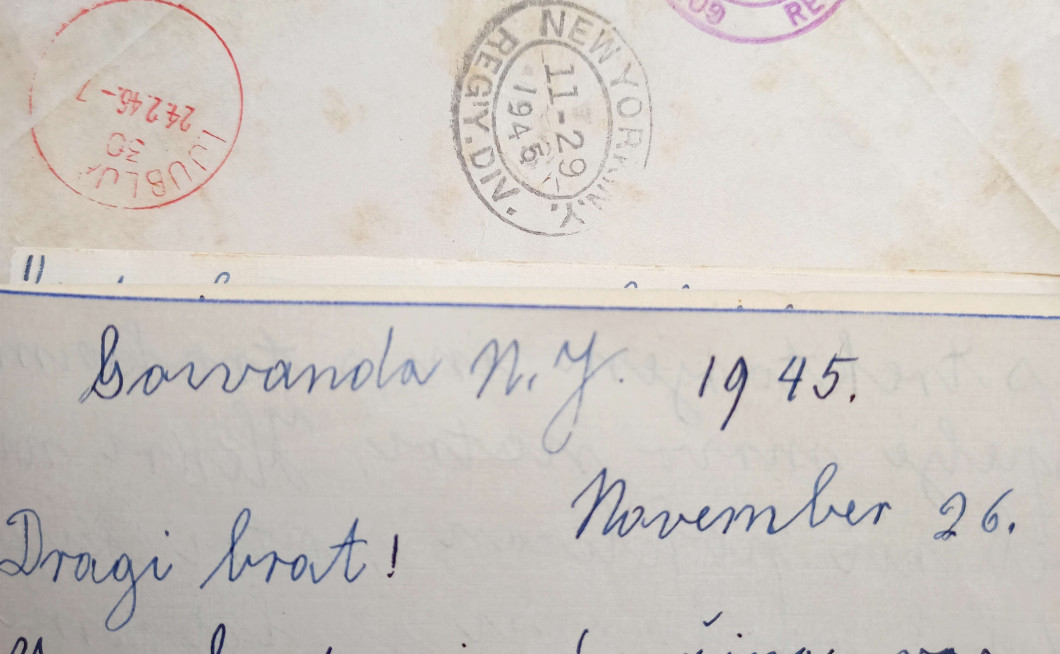 LJUBLJ
30
24.2.46.-7
NEW YORK, N.Y.
11-29
1945
REG'Y. DIV.
RE
Gowanda N.Y. 1945.
November 26.
Dragi brat!